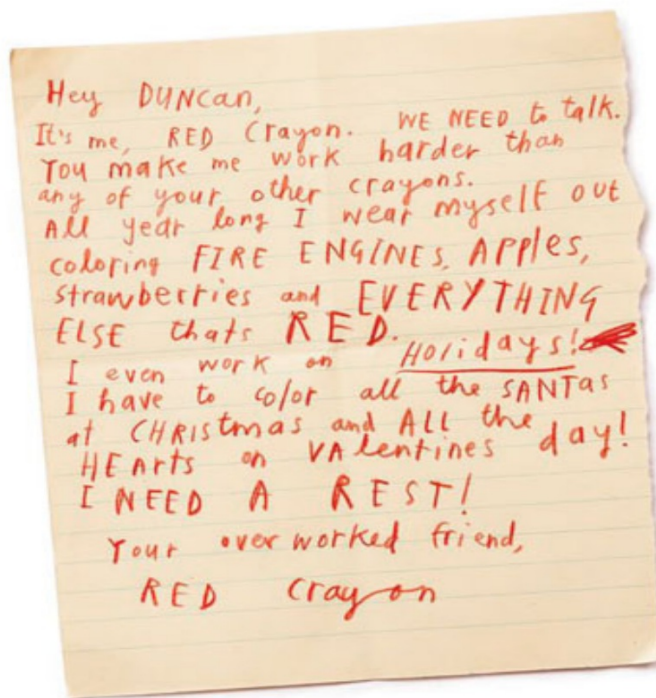 Hey DUNCan,
It's me, RED Crayon. WE NEED to talk.
You make me work harder than
any of your other crayons.
All year long I wear myself out
coloring FIRE ENGINES, APPles,
strawberries and EVERYTHING
ELSE thats RED.
I even work on Holidays!
I have to color all the SANTas
at CHRIStmas and ALL the
HEArts on VAlentines day!
I NEED A REST!
Your overworked friend,
RED Crayon